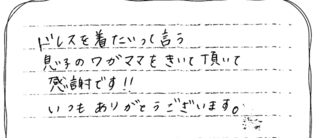 ドレスを着たいって言う
息子のワガママをきいて頂いて
感謝です!!
いつもありがとうございます。